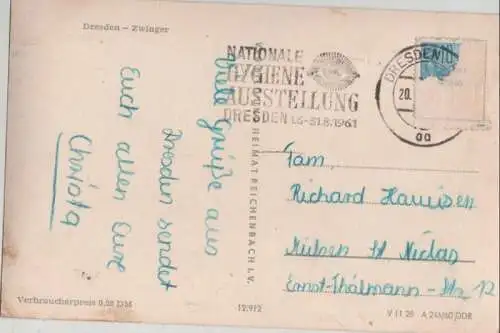 Dresden – Zwinger
Viele Grüße aus
Dresden sendet
Euch allen Eure
Christa
Verbraucherpreis 0,20 DM
HEIMAT REICHENBACH I. V.
12/912
NATIONALE
HYGIENE
AUSSTELLUNG
DRESDEN 1.6.-31.8.1961
DRESDEN
20.
Fam
Richard
Mülsen St Niclas
Ernst-Thälmann-Str 12
V 11 28 A 248/60 DDR